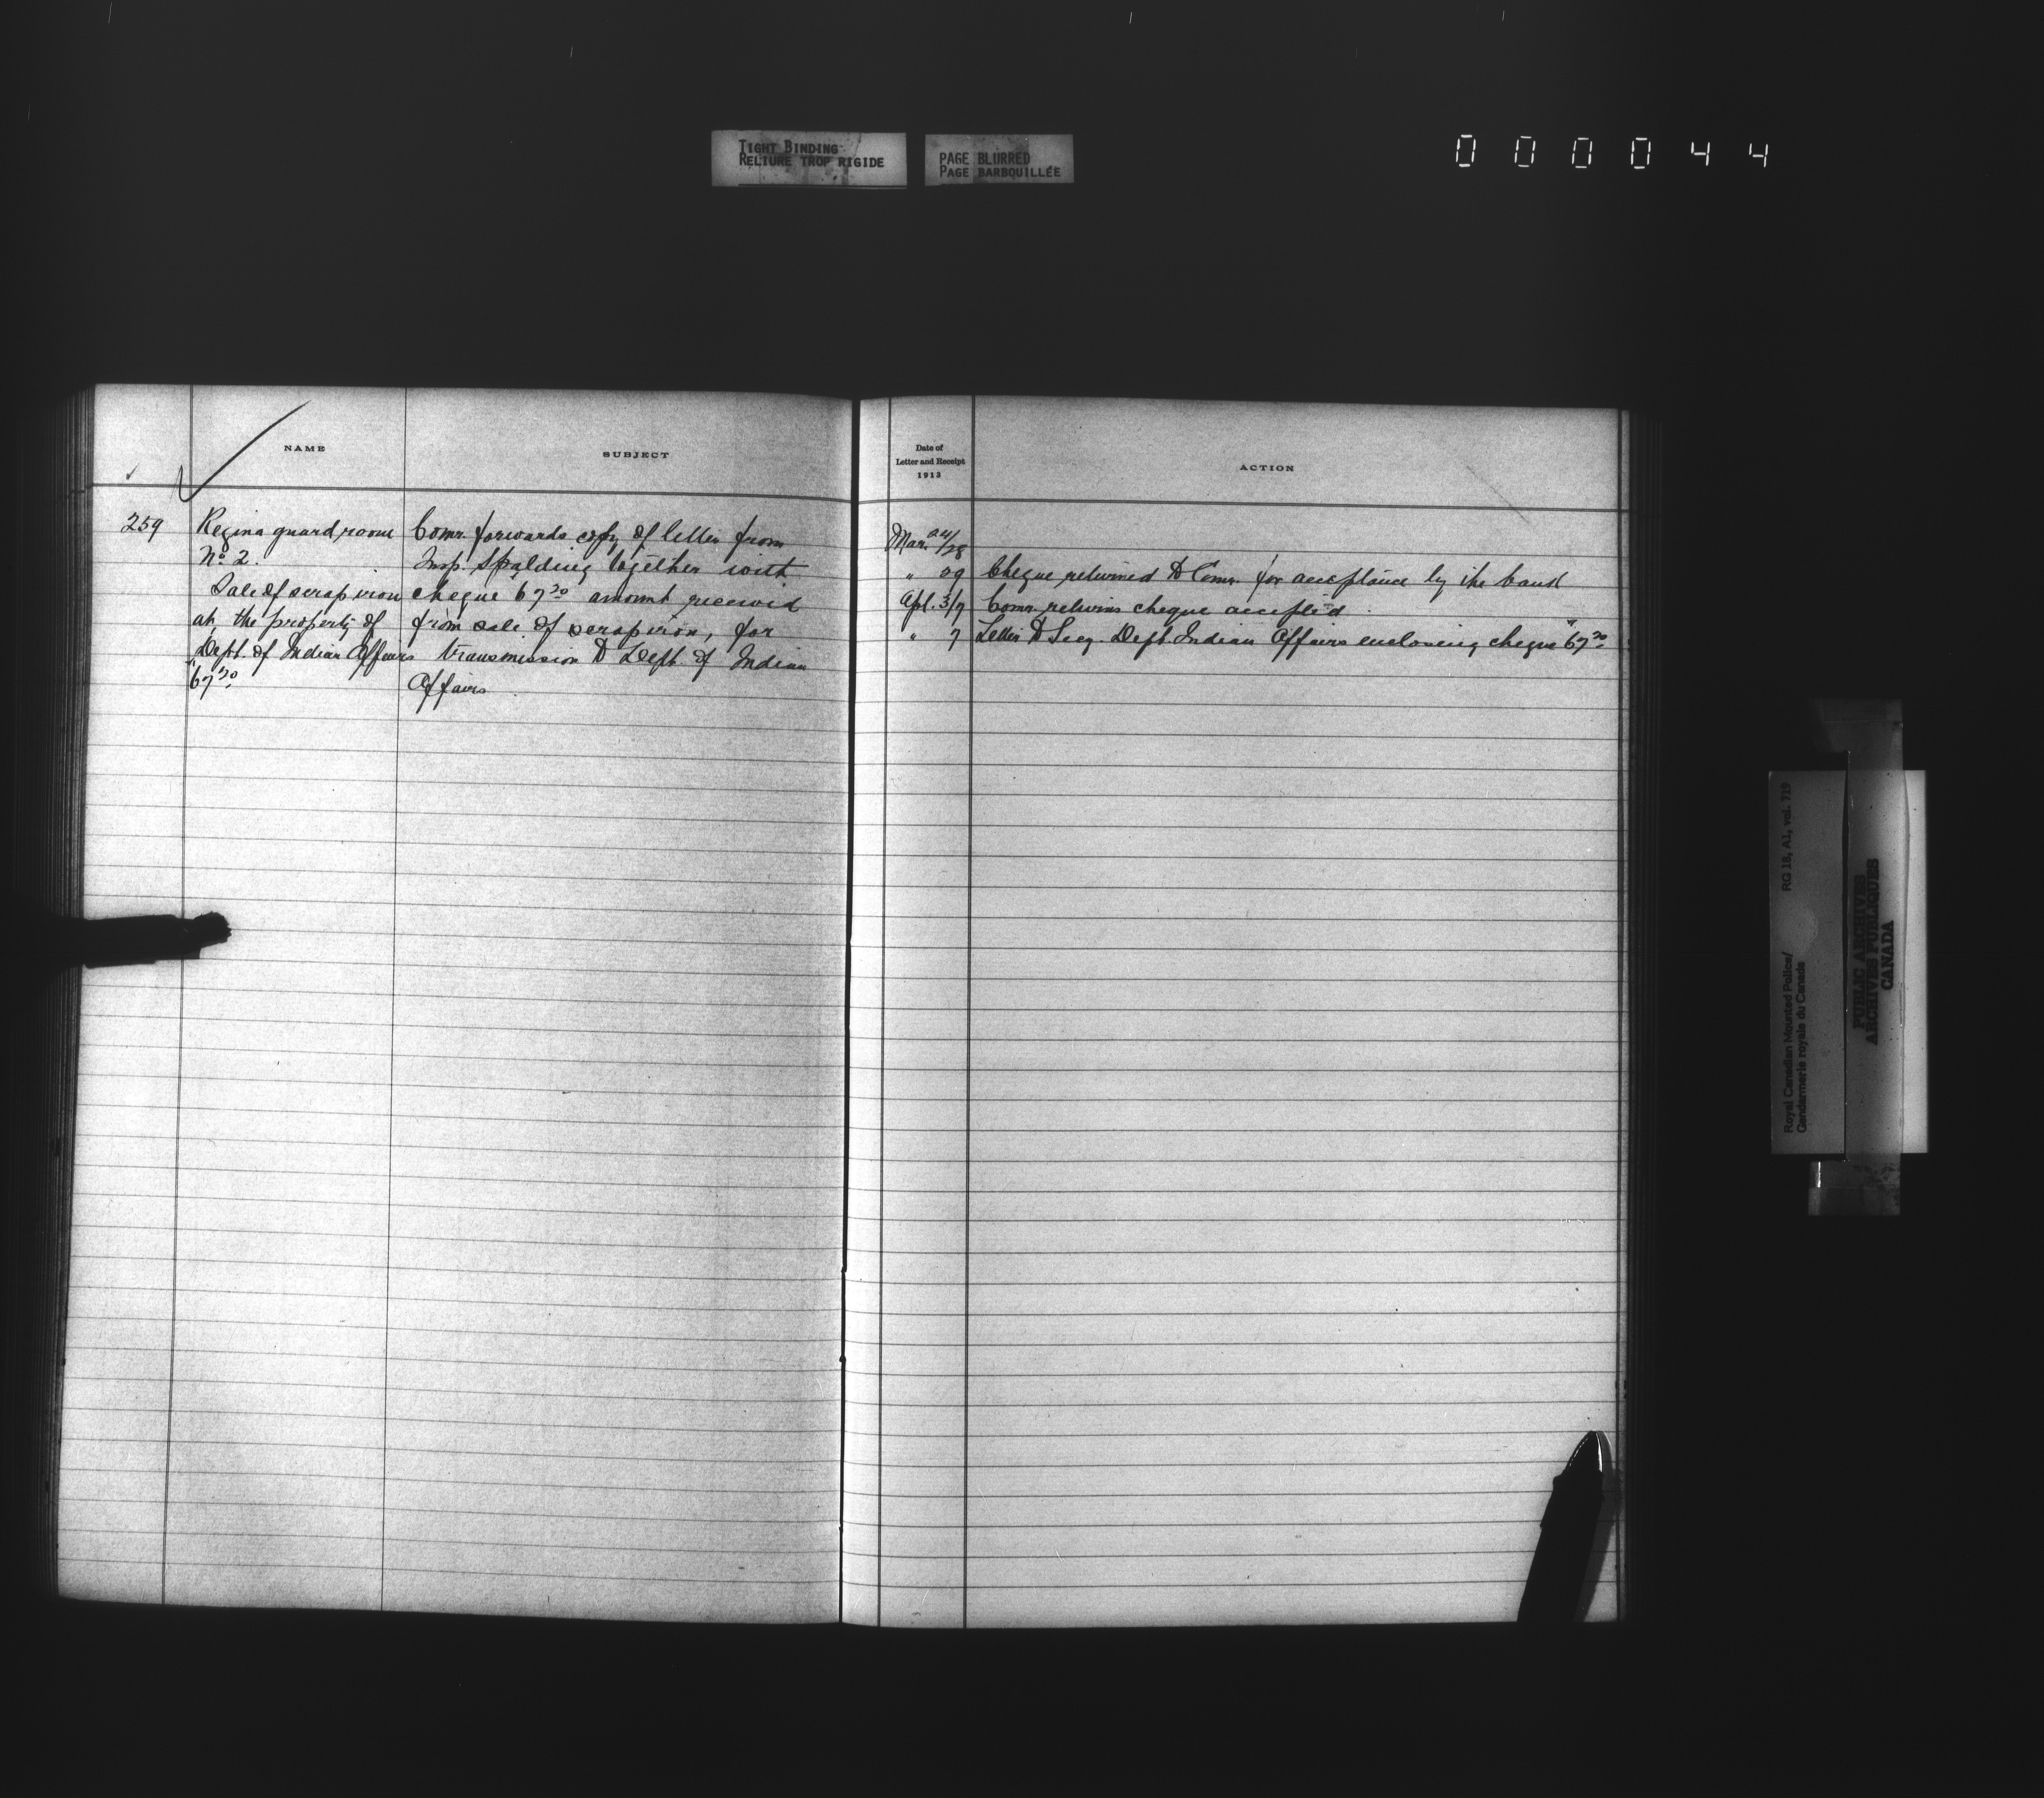 TIGHT BINDING
RELIURE TROP RIGIDE
PAGE BLURRED
PAGE BARBOUILLÉE
000044
NAME
SUBJECT
259
Regina guard room
No 2.
Sale of scrap iron
at the property of
Dept. of Indian Affairs
"67.20
Comr. forwards copy of letter from
Insp. Spalding together with
cheque 67.20 amount received
from sale of scrap iron, for
transmission to Dept. of Indian
Affairs.
Date of
Letter and Receipt
1913
ACTION
Mar. 24/28
" 29 Cheque returned to Comr. for acceptance by the bank
Apl. 3/7 Comr. returns cheque accepted.
" 7 Letter to Secy. Dept. Indian Affairs enclosing cheque "67.20
Royal Canadian Mounted Police/ RG 18, A1, vol. 719
Gendarmerie royale du Canada
PUBLIC ARCHIVES
ARCHIVES PUBLIQUES
CANADA